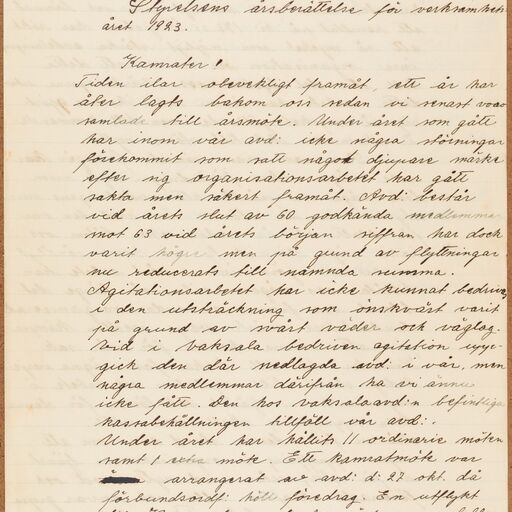 Styrelsens årsberättelse för verksamhets
året 1923.
Kamrater!
Tiden ilar obevekligt framåt, ett år har
åter lagts bakom oss sedan vi senast voro
samlade till årsmöte. Under året som gått
har inom vår avd: icke några störningar
förekommit som satt något djupare märke
efter sig organisationsarbetet har gått
sakta men säkert framåt. Avd: består
vid årets slut av 60 godkända medlemmar
mot 63 vid årets början siffran har dock
varit högre men på grund av flyttningar
nu reducerats till nämnda summa.
Agitationsarbetet har icke kunnat bedrivas
i den utsträckning som önskvärt varit
på grund av svårt väder och väglag.
Vid i vaksala bedriven agitation upp-
gick den där nedlagda avd: i vår, men
några medlemmar därifrån ha vi ännu
icke fått. Den hos vaksalaavd:n befintliga
kassabehållningen tillföll vår avd:.
Under året har hållits 11 ordinarie möten
samt 1 extra möte. Ett kamratmöte var
arrangerat av avd: d: 27 okt. då
förbundsordf: höll föredrag. En utflykt